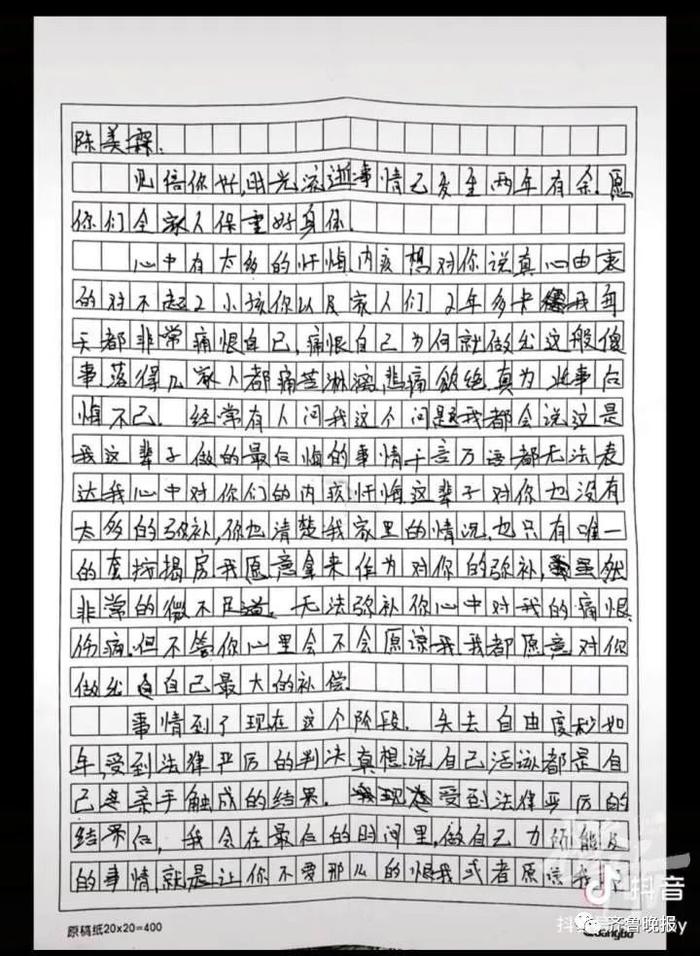 陈美霖:
见信你好,时光流逝事情已发生两年有余.愿
你们全家人保重好身体.
心中有太多的忏悔内疚想对你说真心由衷
的对不起2小孩你以及家人们.2年多来我每
天都非常痛恨自己,痛恨自己为何就做出这般傻
事落得几家人都痛苦淋漓,悲痛欲绝真为此事后
悔不已. 经常有人问我这个问题我都会说这是
我这辈子做的最后悔的事情千言万语都无法表
达我心中对你们的内疚忏悔这辈子对你也没有
太多的弥补,你也清楚我家里的情况,也只有唯一
的套按揭房我愿意拿来作为对你的弥补,虽然
非常的微不足道. 无法弥补你心中对我的痛恨
伤痛.但不管你心里会不会原谅我我都愿意对你
做出自己最大的补偿
事情到了现在这个阶段. 失去自由度秒如
年,受到法律严厉的判决真想说自己活该都是自
己亲手触成的结果. 受到法律严厉的
结果后, 我会在最后的时间里,做自己力所能及
的事情,就是让你不爱那么的恨我或者原谅我
原稿纸20×20=400
Guangbo
抖音
齐鲁晚报